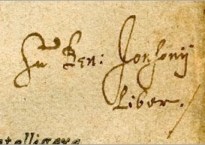 Sũ Ben: Jonsonij
Liber.
ntelligere